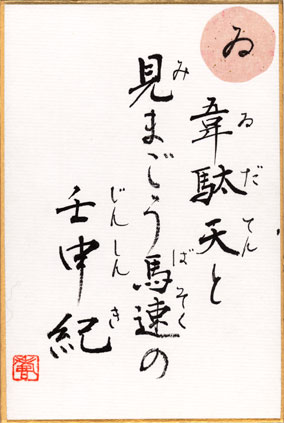 ゐ
韋駄天と
ゐだてん
見まごう馬速の
み
ばそく
壬申紀
じんしんき